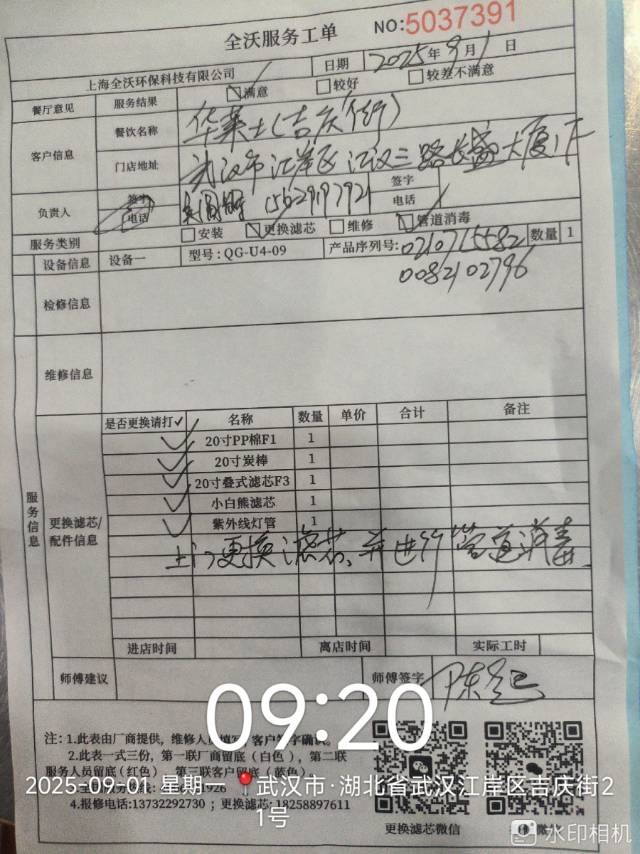 全沃服务工单
NO:5037391
上海全沃环保科技有限公司 日期 2025年9月1日
餐厅意见 服务结果 满意 较好 较差不满意
客户信息 餐饮名称 华莱士(吉庆街)
门店地址 武汉市江岸区江汉三路长盛大厦1F
负责人 签字 签字
电话 15629197921 电话
服务类别 安装 更换滤芯 维修 管道消毒
设备信息 设备一 型号:QG-U4-09 产品序列号: 0210715582 数量 1
0082102796
检修信息
维修信息
服务信息
更换滤芯/配件信息
是否更换请打✓ 名称 数量 单价 合计 备注
✓ 20寸PP棉F1 1
✓ 20寸炭棒 1
✓ 20寸叠式滤芯F3 1
✓ 小白熊滤芯 1
✓ 紫外线灯管 1
上门更换滤芯、并进行管道消毒
进店时间 离店时间 实际工时
师傅建议 师傅签字
09:20
注:1.此表由厂商提供,维修人员填写,客户签字确认。
2.此表一式三份,第一联厂商留底(白色),第二联
服务人员留底(红色) 第三联客户留底(蓝色)
2025-09-01 星期 武汉市·湖北省武汉江岸区吉庆街21号
926
4.报修电话:13732292730 ; 更换滤芯:18258897611
更换滤芯微信
水印相机